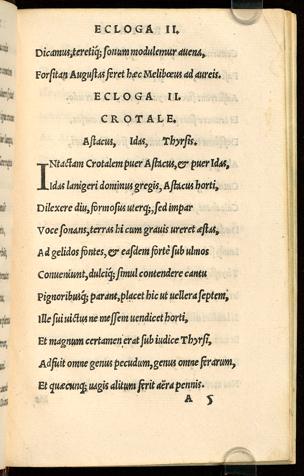 ECLOGA II.
Dicamus, teretiq; sonum modulemur auena,
Forsitan Augustas feret hæc Melibœus ad aureis.
ECLOGA II.
CROTALE.
Astacus, Idas, Thyrsis.
INtactam Crotalem puer Astacus, & puer Idas,
Idas lanigeri dominus gregis, Astacus horti,
Dilexere diu, formosus uterq;, sed impar
Voce sonans, terras hi cum grauis ureret æstas,
Ad gelidos fontes, & easdem forte sub ulmos
Conueniunt, dulciq; simul contendere cantu
Pignoribusq; parant, placet hic ut uellera septem,
Ille sui uictus ne messem uendicet horti,
Et magnum certamen erat sub iudice Thyrsi,
Adfuit omne genus pecudum, genus omne ferarum,
Et quæcunq; uagis alitum ferit aëra pennis.
A 5